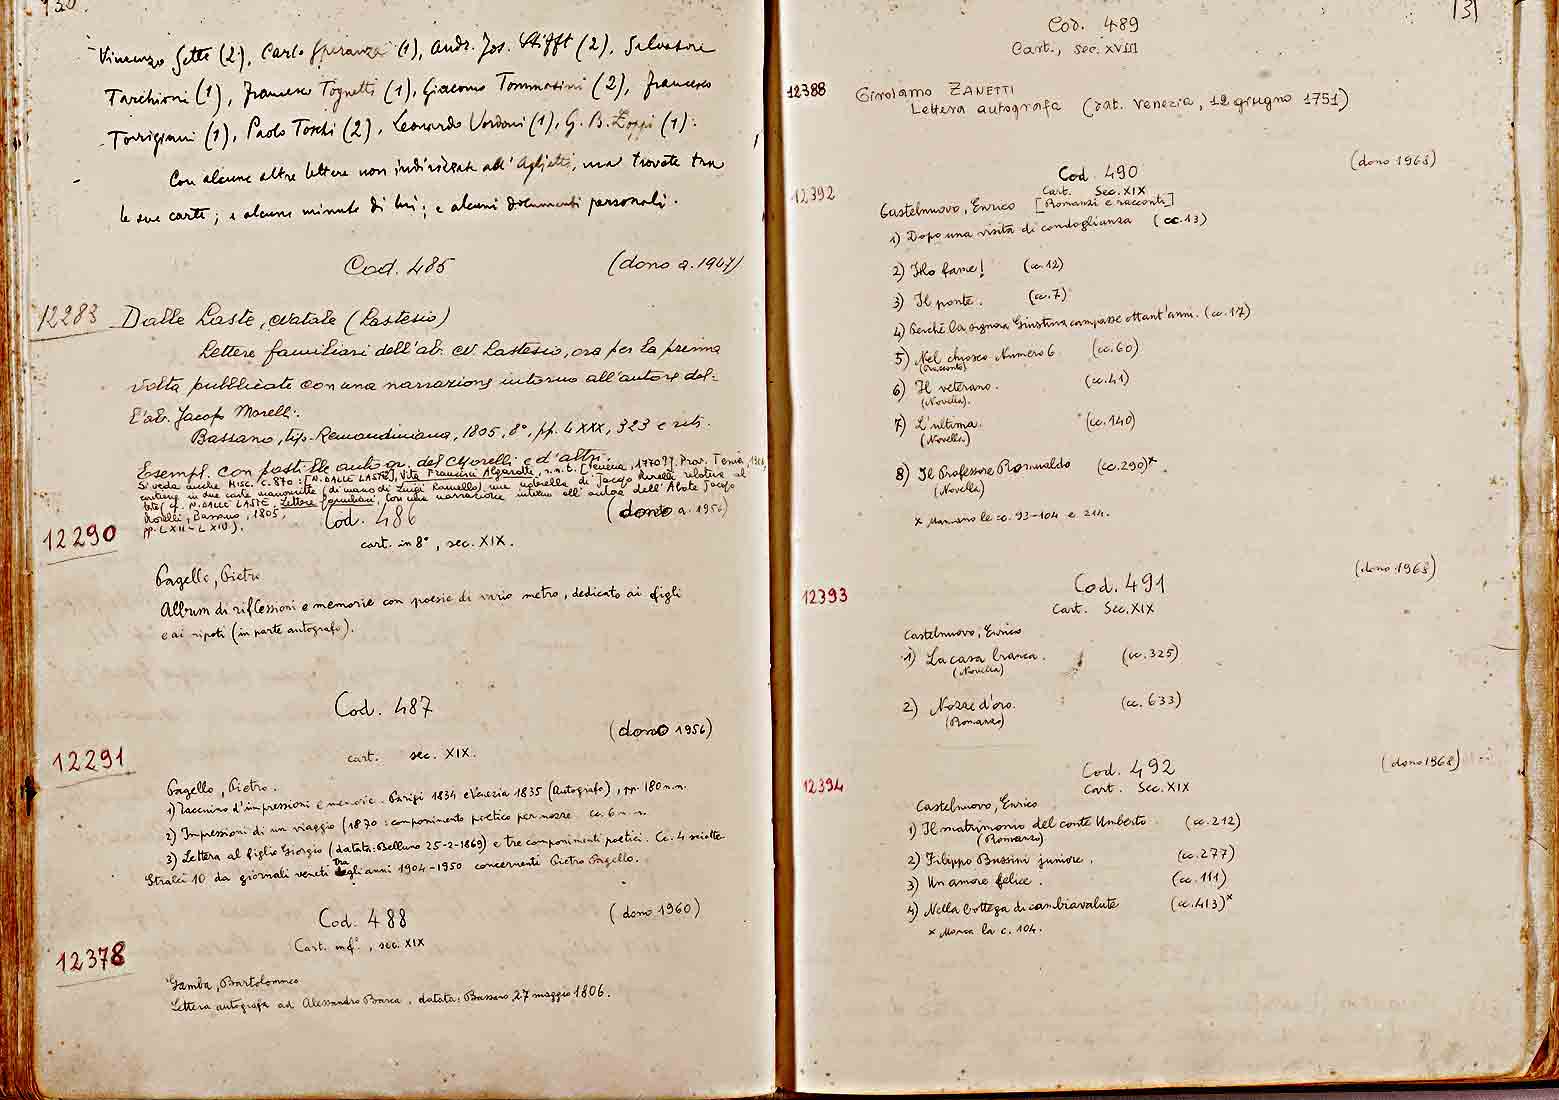 130
Vincenzo Sette (2), Carlo Speranza (1), Andr. Jos. Stifft (2), Salvatore
Tarchioni (1), Francesco Tognetti (1), Giacomo Tommasini (2), Francesco
Torrigiani (1), Paolo Toschi (2), Leonardo Vordoni (1), G. B. Zoppi (1).
Con alcune altre lettere non indirizzate all'Aglietti, ma trovate tra
le sue carte; e alcune minute di lui; e alcuni documenti personali.
Cod. 485 (dono a. 1947)
12283 Dalle Laste, Natale (Lastesio)
Lettere familiari dell'ab. N. Lastesio, ora per la prima
volta pubblicate con una narrazione intorno all'autore del-
l'ab. Jacopo Morelli.
Bassano, tip. Remondiniana, 1805, 8°, pp. LXXX, 323 e ritr.
Esempl. con postille autogr. del Morelli e d'altri.
Si veda anche Misc. C. 870: [N. DALLE LASTE], Vita Francisci Algarotti, s.n.t. [Venezia, 1770?]. Prov. Tenia
contiene in due carte manoscritte (di mano di Luigi Ramello) una notarella di Jacopo Morelli relativa al
(cf. N. DALLE LASTE, Lettere famigliari, con una narrazione intorno all'autore dell'Abate Jacopo
Morelli, Bassano, 1805,
pp. LXII-LXIV).
Cod. 486 (dono a. 1956)
12290
cart. in 8°, sec. XIX.
Pagello, Pietro
Album di riflessioni e memorie con poesie di vario metro, dedicato ai figli
e ai nipoti (in parte autografo).
Cod. 487
(dono 1956)
12291
cart. sec. XIX.
Pagello, Pietro.
1) Taccuino d'impressioni e memorie. Parigi 1834 e Venezia 1835 (Autografo), pp. 180 n.n.
2) Impressioni di un viaggio (1870: componimento poetico per nozze. cc. 6 n.n.
3) Lettera al figlio Giorgio (datata: Belluno 25-2-1869) e tre componimenti poetici. Cc. 4 sciolte
Stralci 10 da giornali veneti tra gli anni 1904-1950 concernenti Pietro Pagello.
Cod. 488 (dono 1960)
Cart. in f°, sec. XIX
12378
Gamba, Bartolommeo
Lettera autografa ad Alessandro Barca, datata: Bassano 27 maggio 1806.
131
Cod. 489
Cart., sec. XVIII
12388 Girolamo ZANETTI
Lettera autografa (dat. Venezia, 12 giugno 1751)
Cod. 490 (dono 1968)
12392
Cart. Sec. XIX
Castelnuovo, Enrico [Romanzi e racconti]
1) Dopo una visita di condoglianza (cc. 13)
2) Ho fame! (cc. 12)
3) Il ponte. (cc. 7)
4) Perché la signora Giustina campasse ottant'anni. (cc. 17)
5) Nel chiosco Numero 6 (cc. 60)
(racconto)
6) Il veterano. (cc. 41)
(Novella).
7) L'ultima. (cc. 140)
(Novella)
8) Il Professore Romualdo (cc. 290)*
(Novella)
x Mancano le cc. 93-104 e 214.
Cod. 491 (dono 1968)
12393
Cart. Sec. XIX
Castelnuovo, Enrico
1) La casa bianca. (cc. 325)
(Novella)
2) Nozze d'oro. (cc. 633)
(Romanzo)
Cod. 492 (dono 1968)
12394
Cart. Sec. XIX
Castelnuovo, Enrico
1) Il matrimonio del conte Umberto. (cc. 212)
(Romanzo)
2) Filippo Bussini juniore. (cc. 277)
3) Un amore felice. (cc. 111)
4) Nella bottega di cambiavalute (cc. 413)*
x Manca la c. 104.